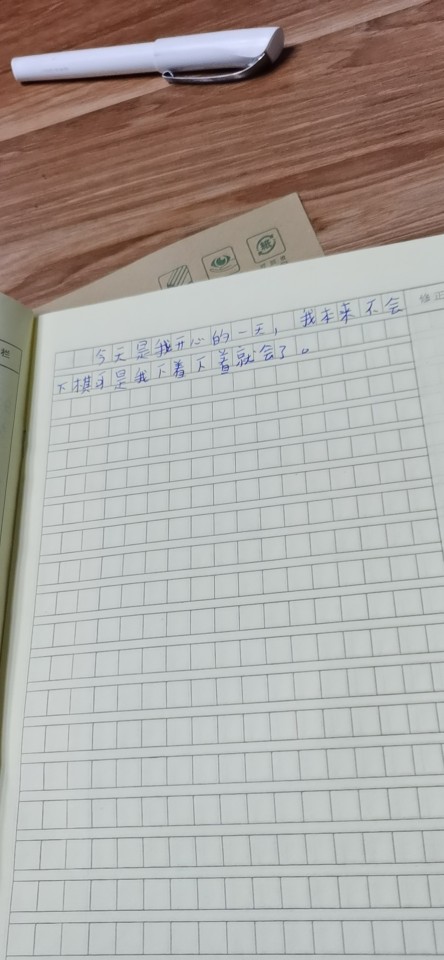 今天是我开心的一天，我本来不会
下棋可是我下着下着就会了。
修正
栏
纸